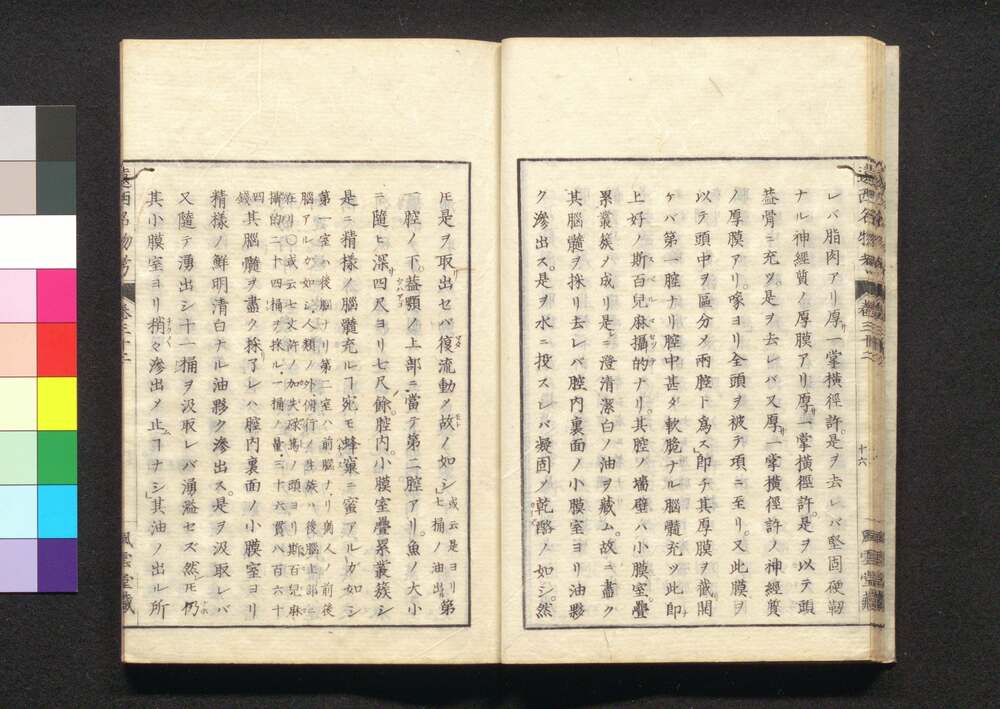 レバ脂肉アリ厚サ一掌横徑許是ヲ去レバ堅固硬靭
ナル神經質ノ厚膜アリ厚サ一掌横徑許是ヲ以テ頭
葢骨ニ充ツ是ヲ去レバ又厚サ一掌横徑許ノ神經質
ノ厚膜アリ喙ヨリ全頭ヲ被テ項ニ至リ又此膜ヲ
以テ頭中ヲ區分メ兩腔ト爲ス」即チ其厚膜ヲ截開
ケバ第一腔ナリ腔中甚ダ軟脆ナル腦髓充ツ此即
上好ノ斯百兒麻攝的ナリ其腔ノ墻壁ハ小膜室疊
累叢簇ノ成リ是ニ澄清潔白ノ油ヲ藏ム故ニ盡ク
其腦髓ヲ採リ去レバ腔内裏面ノ小膜室ヨリ油夥
ク滲出ス是ヲ水ニ投スレバ凝固ノ乾酪ノ如シ然
十六
𪜈是ヲ取リ出セバ復流動メ故ノ如シ或云是ヨリ七桶ノ油出ヅ第
一腔ノ下葢顎ノ上部ニ當テ第二腔アリ魚ノ大小
ニ隨ヒ深サ四尺ヨリ七尺餘腔内小膜室疊累叢簇シ
是ニ精樣ノ腦髓充ルヿ宛モ蜂窠ニ蜜アルガ如シ
第一室ハ後腦ナリ第二室ハ前腦ナリ輿人ノ前後
腦アルガ如シ人類ノ外俯行ノ生族ハ後腦上部ニ
在リ〇或云七丈許ノ加失珠馬ノ頭ヨリ斯百兒麻
攝的二十四桶ヲ採ル一桶ノ量三十六貫八百六十
四錢其腦髓ヲ盡ク採了レハ腔内裏面ノ小膜室ヨリ
精樣ノ鮮明清白ナル油夥ク滲出ス是ヲ汲取レバ
又隨テ湧出シ十一桶ヲ汲取レバ湧溢セズ然𪜈仍
其小膜室ヨリ稍々滲出メ止ムヿナシ」其油ノ出ル所
遠西名物考
卷三十二
風雲堂藏